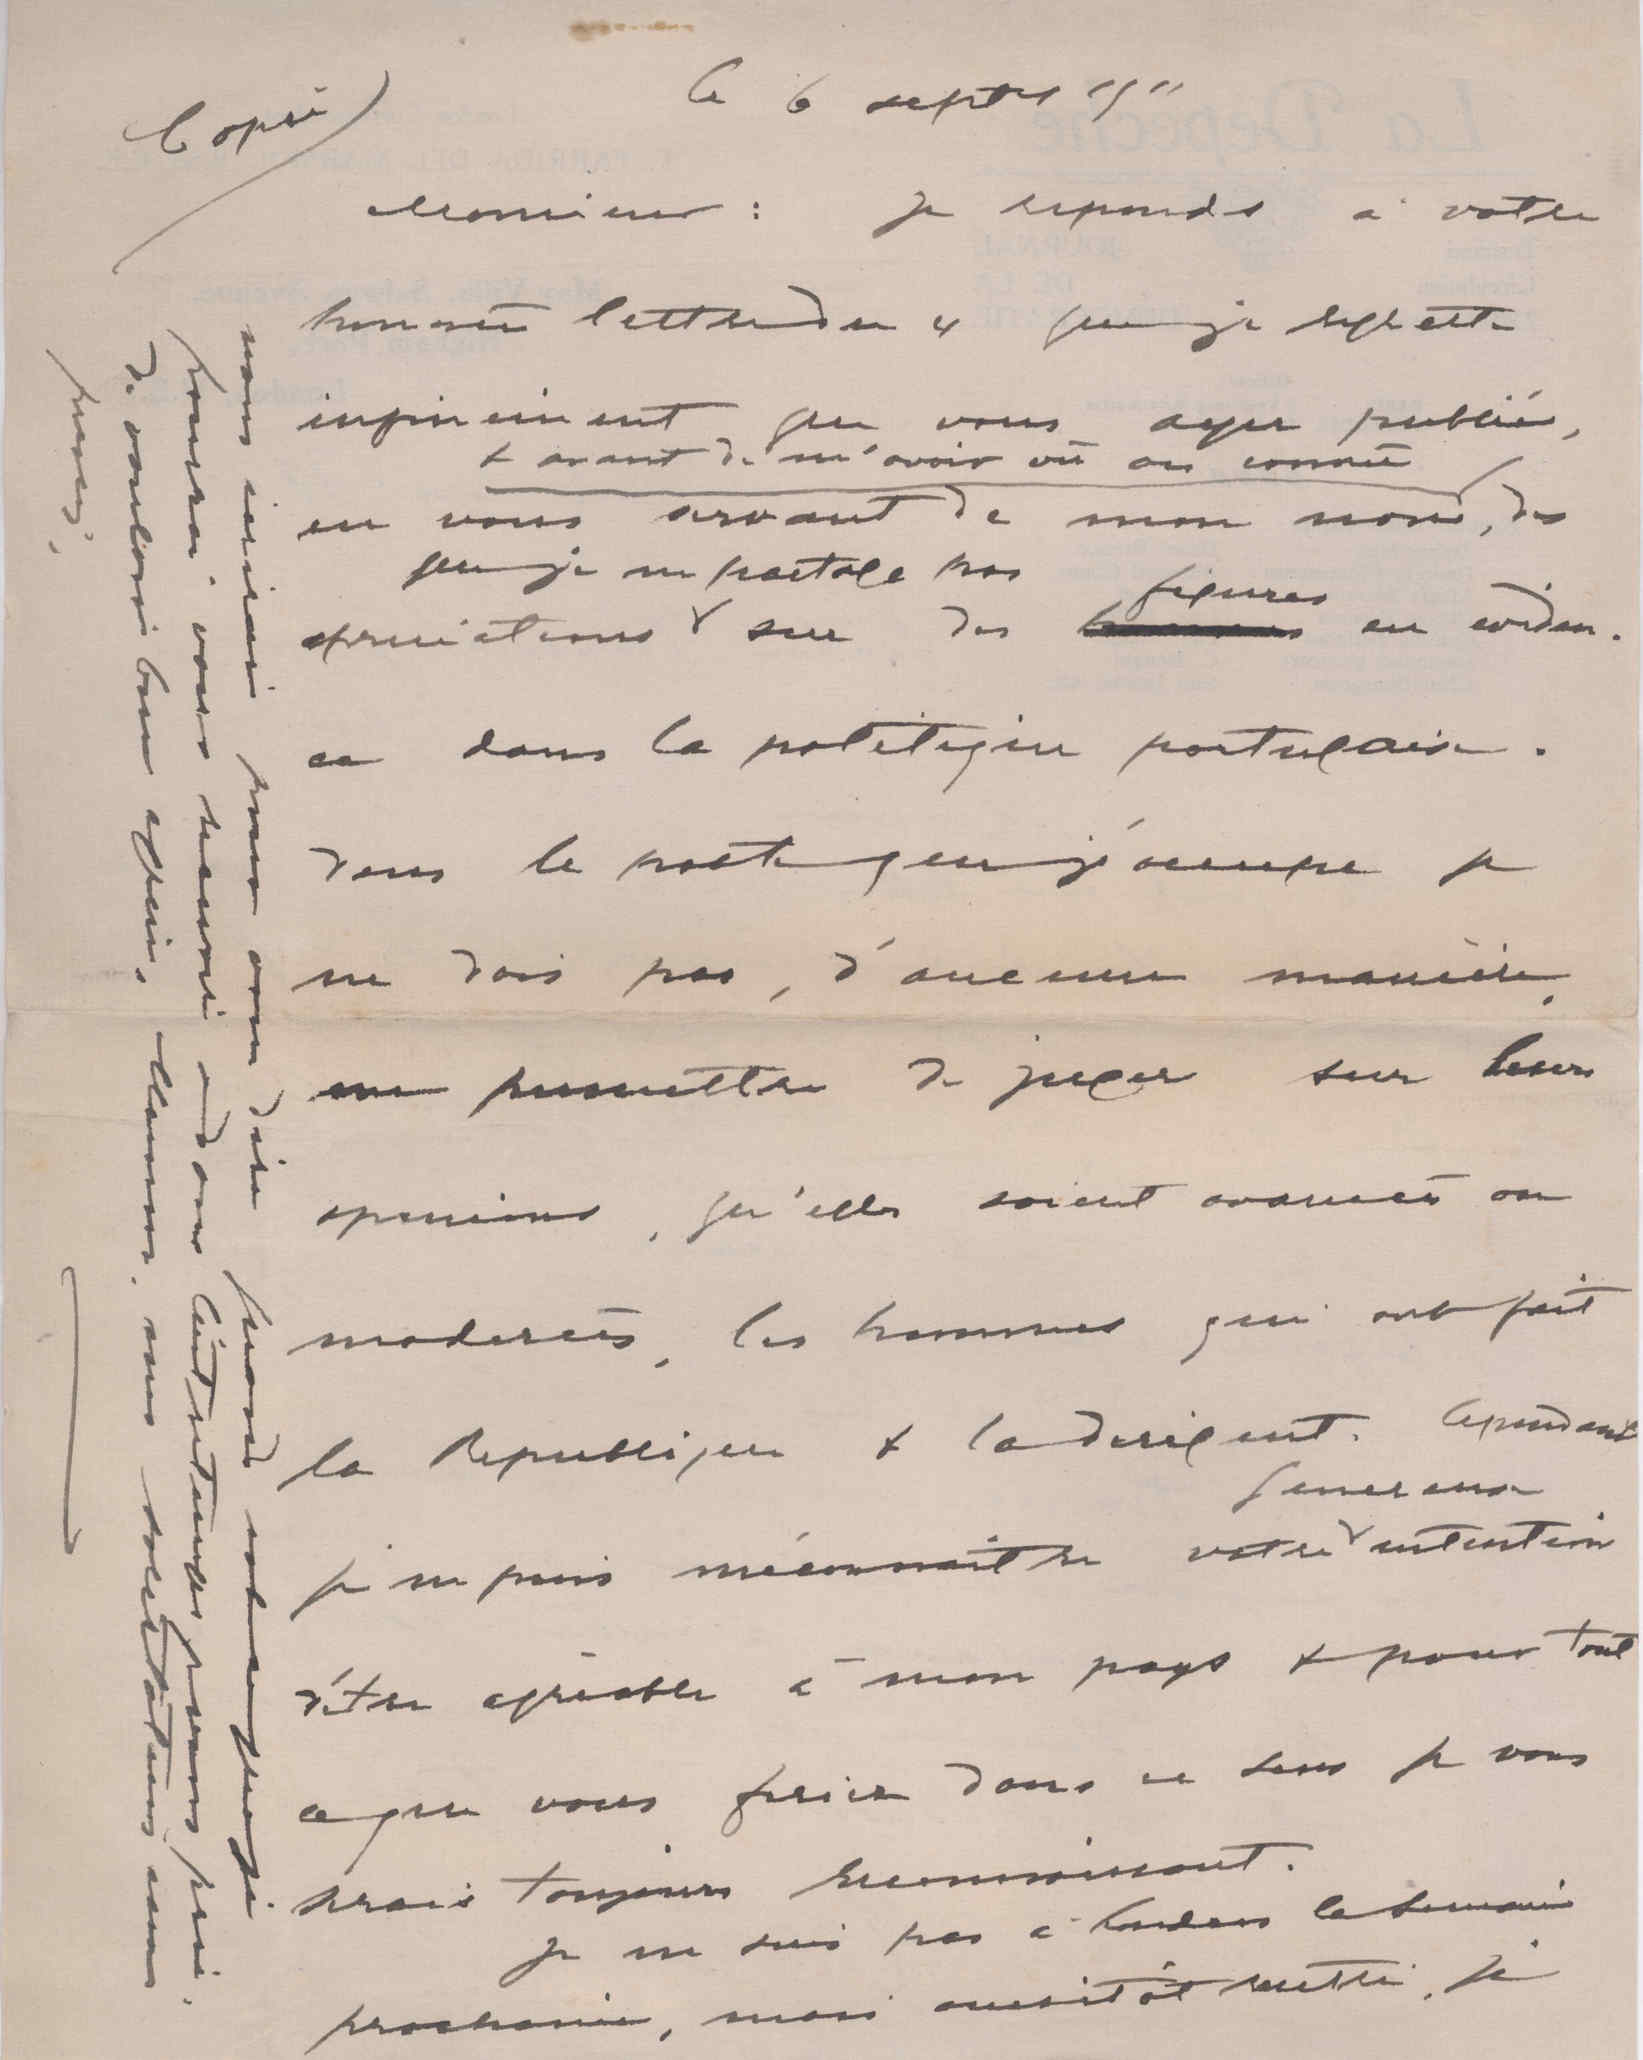 Copie
le 6 septre 1911
Monsieur : Je reponds a votre
honorée lettre du 4 que je regrette
infiniment que vous ayez publiée,
& avant de m'avoir vû ou connu
en vous servant de mon nom, des
que je ne partage pas
apreciations sur des figures en eviden-
ce dans la politique portugaise.
Dans le poste que j'occupe je
ne dois pas, d'aucune manière,
me permettre de juger sur leurs
opinions, qu'elles soient avancées ou
moderées, les hommes qui ont fait
la Republique & la dirigent. Cependant
genereuse
je ne puis méconnaitre votre intention
d'être agréable à mon pays & pour tout
ce que vous feriez dans ce sens je vous
serais toujours reconnaissant.
Je ne suis pas à Londres la semaine
prochaine, mais aussitôt rentré, je
vous ecrirai pour vous dire quand est-ce que je
pourrai vous recevoir
de vouloir bien agréer, Monsieur, mes salutations